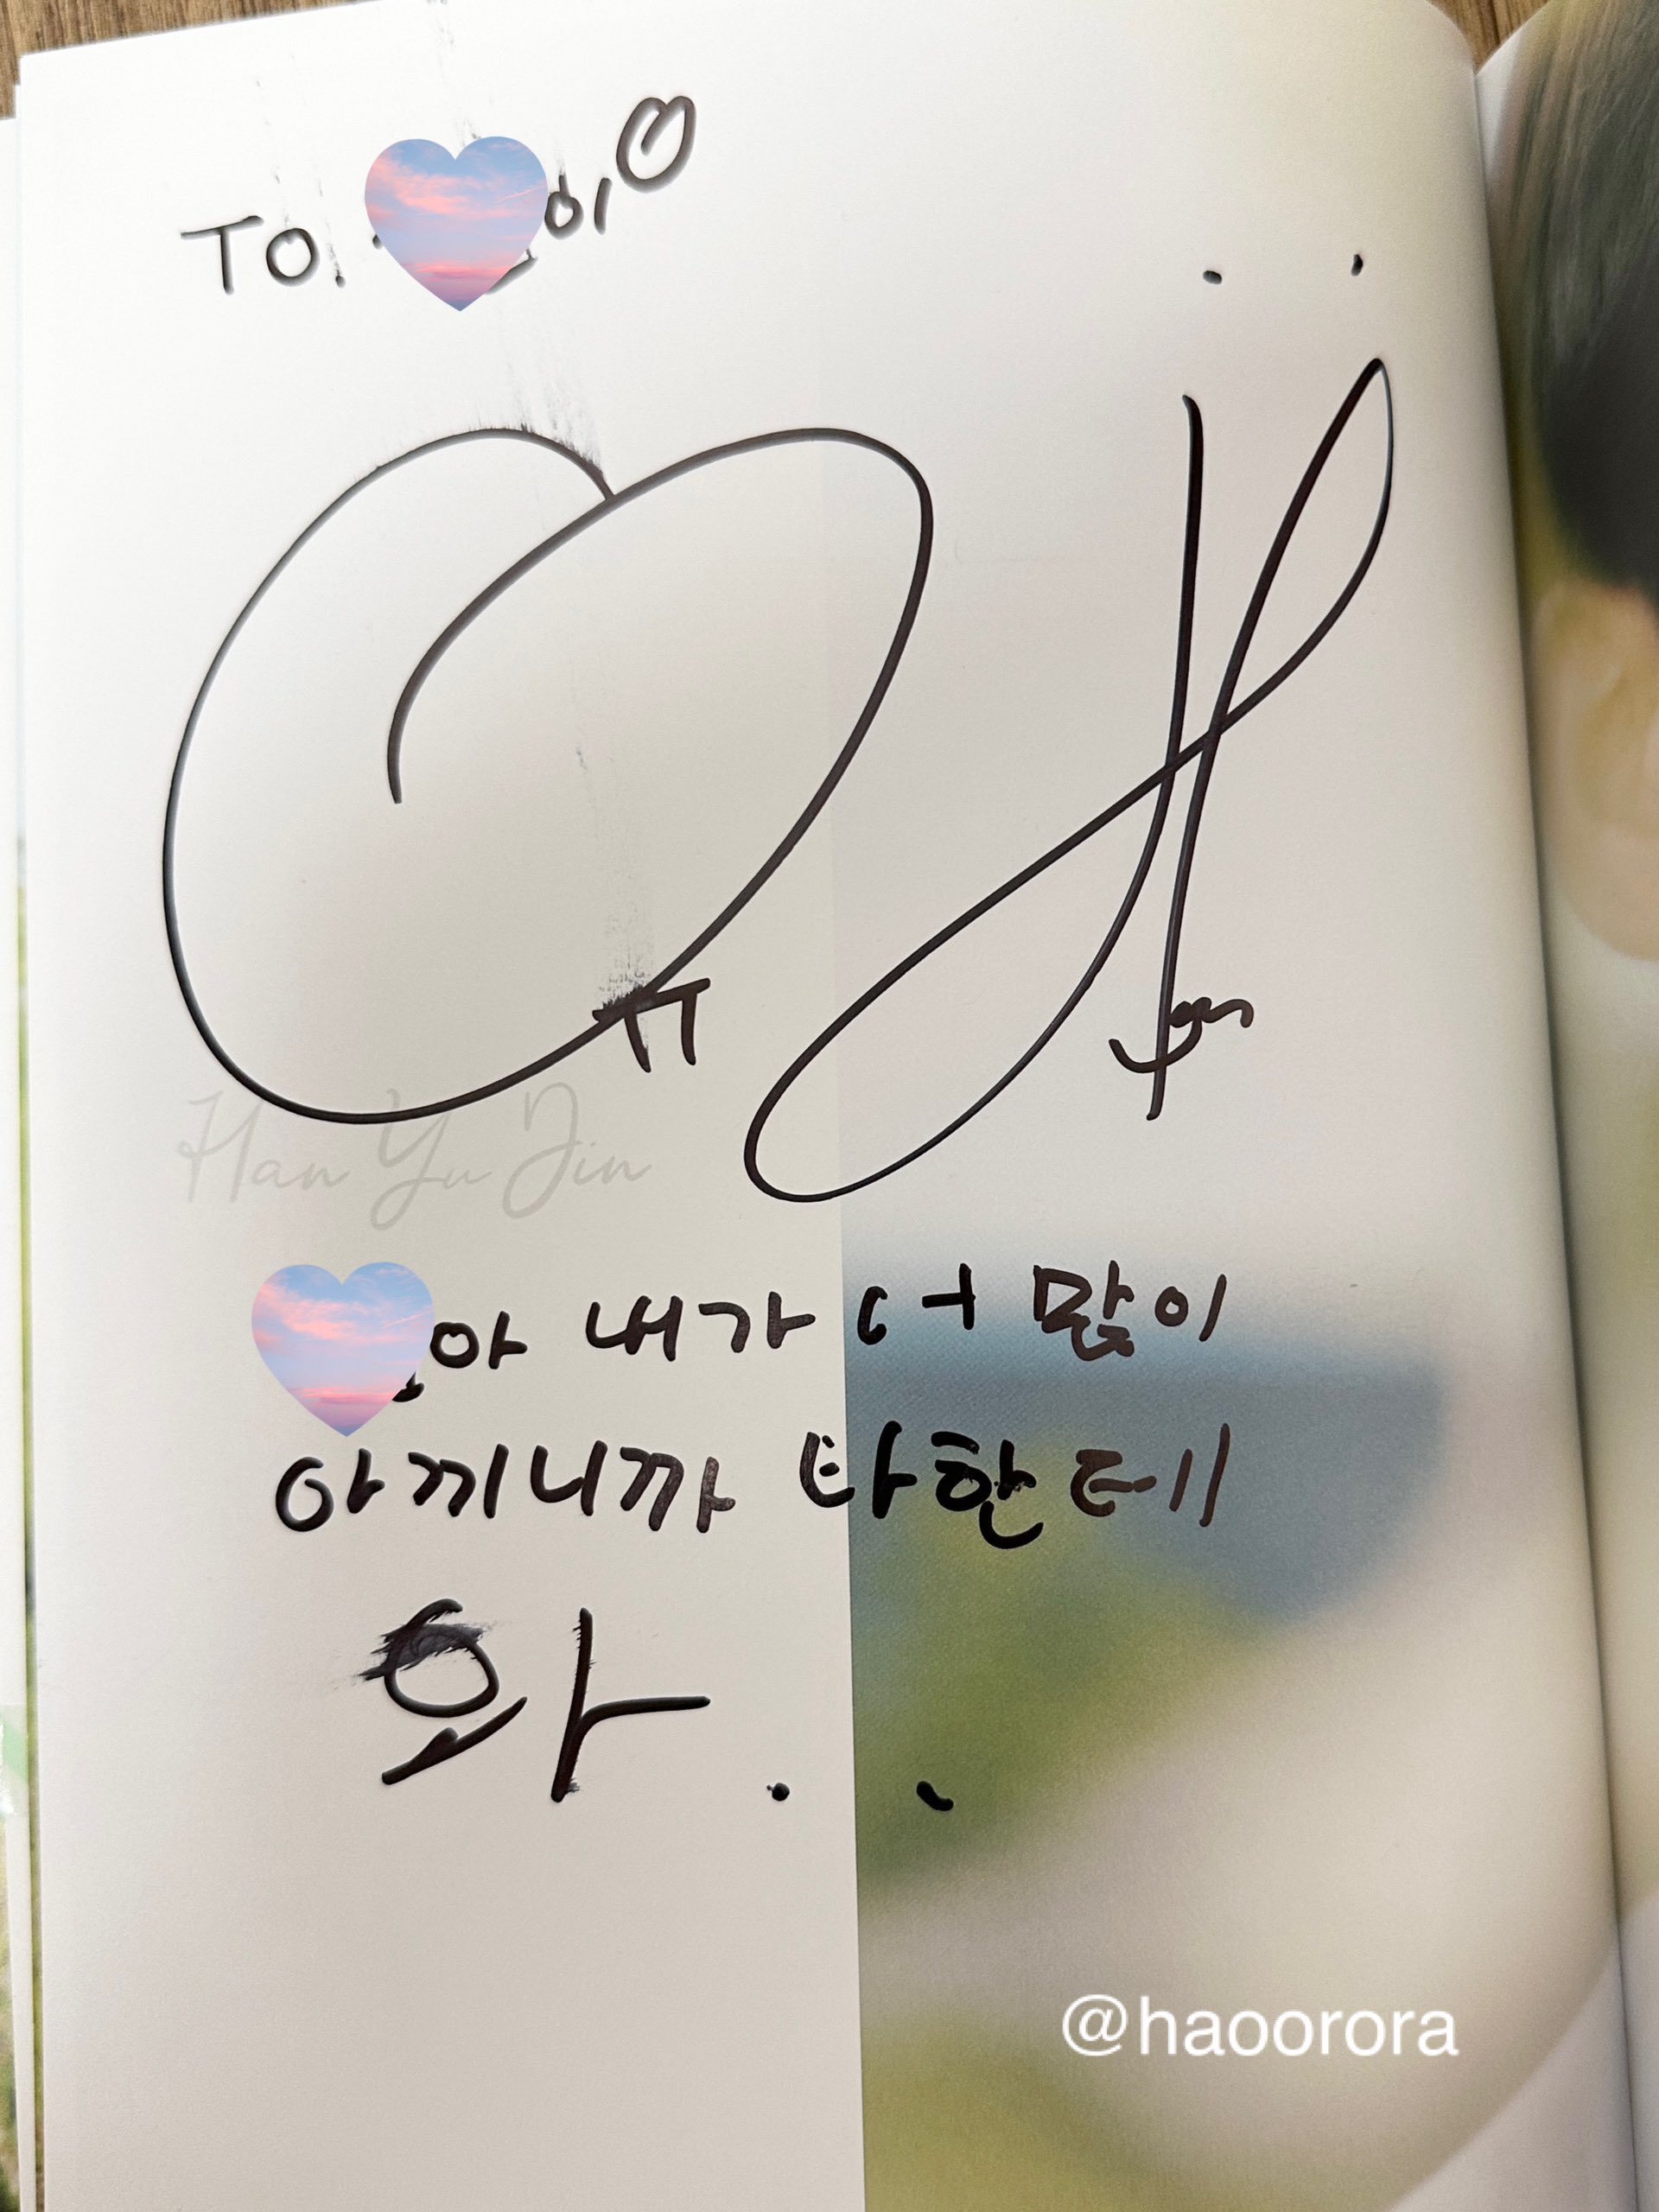 To. 이
Han Yu Jin
아 내가 더 많이
아끼니까 나한테
와..
@haoorora